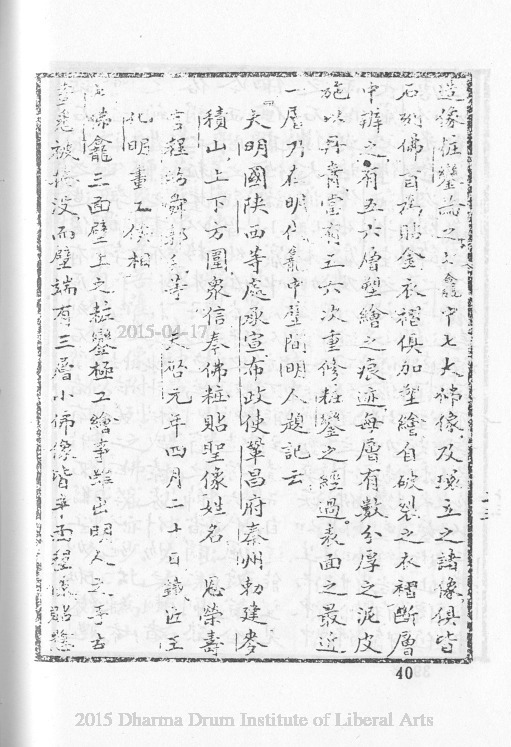 造像粧鑾論之大龕中七大佛像及環立之諸像俱皆
石刻佛百施貼金衣褶俱加塑繪自破裂之衣褶斷層
中辨之有五六層塑繪之痕迹每層有數分厚之泥皮
施以丹青當有五六次重修粧鑾之經過。表面之最近
一層乃在明代龕中壁間明人題記云
大明國陝西等處承宣布政使鞏昌府秦州勅建麥
積山上下方圍眾信奉佛粧貼聖像姓名 恩榮壽
官程 等 天啓元年四月二十日鐵匠王
化明畫工
佛龕三面壁上之粧鑾極工繪事雖出明人之手古
意悉被掩沒而壁端有三層小佛像皆辛 貼
十三
40
2015-04-17
2015 Dharma Drum Institute of Liberal Arts